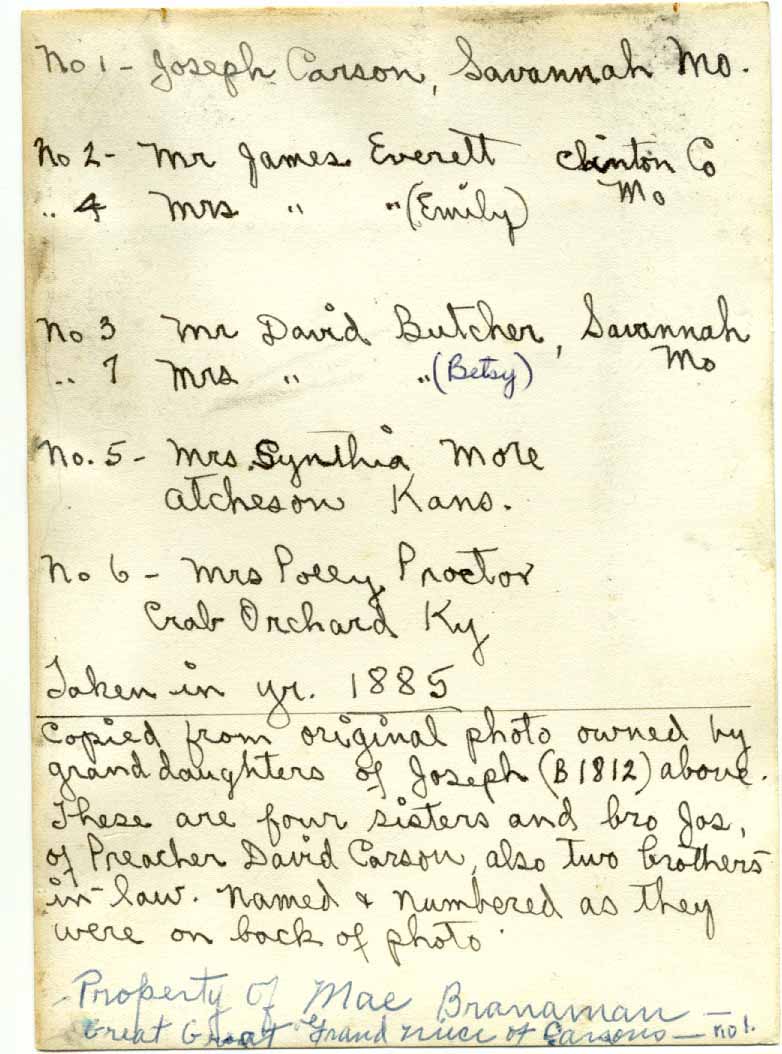 No 1 - Joseph Carson, Savannah Mo.
No 2 - Mr James Everett Clinton Co
Mo
" 4 Mrs " " (Emily)
No 3 Mr David Butcher, Savannah
Mo
" 7 Mrs " " (Betsy)
No. 5 - Mrs Synthia More
Atcheson Kans.
No 6 - Mrs Polly Proctor
Crab Orchard Ky
Taken in yr. 1885
Copied from original photo owned by
granddaughters of Joseph (B 1812) above.
These are four sisters and bro Jos,
of Preacher David Carson, also two brothers
in-law. Named & numbered as they
were on back of photo.
Property of Mae Branaman -
Great Great Grand niece of Carsons - no 1.